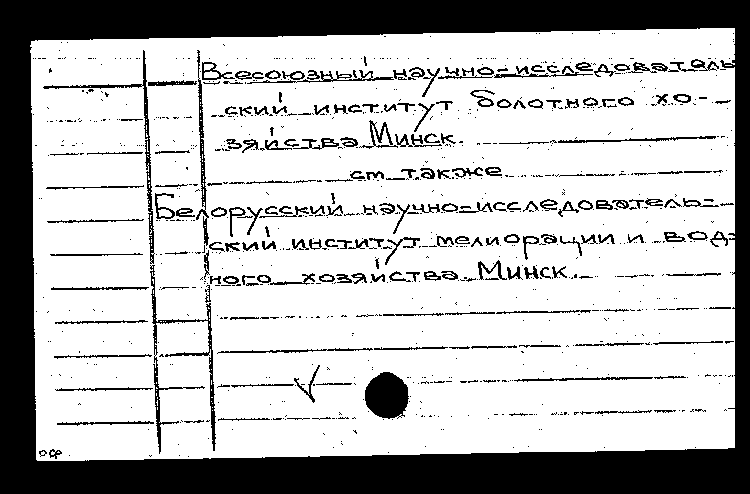 Всесоюзный научно-исследователь
ский институт болотного хо-
зяйства Минск.
см. также
Белорусский научно-исследователь-
ский институт мелиорации и вод-
ного хозяйства. Минск.